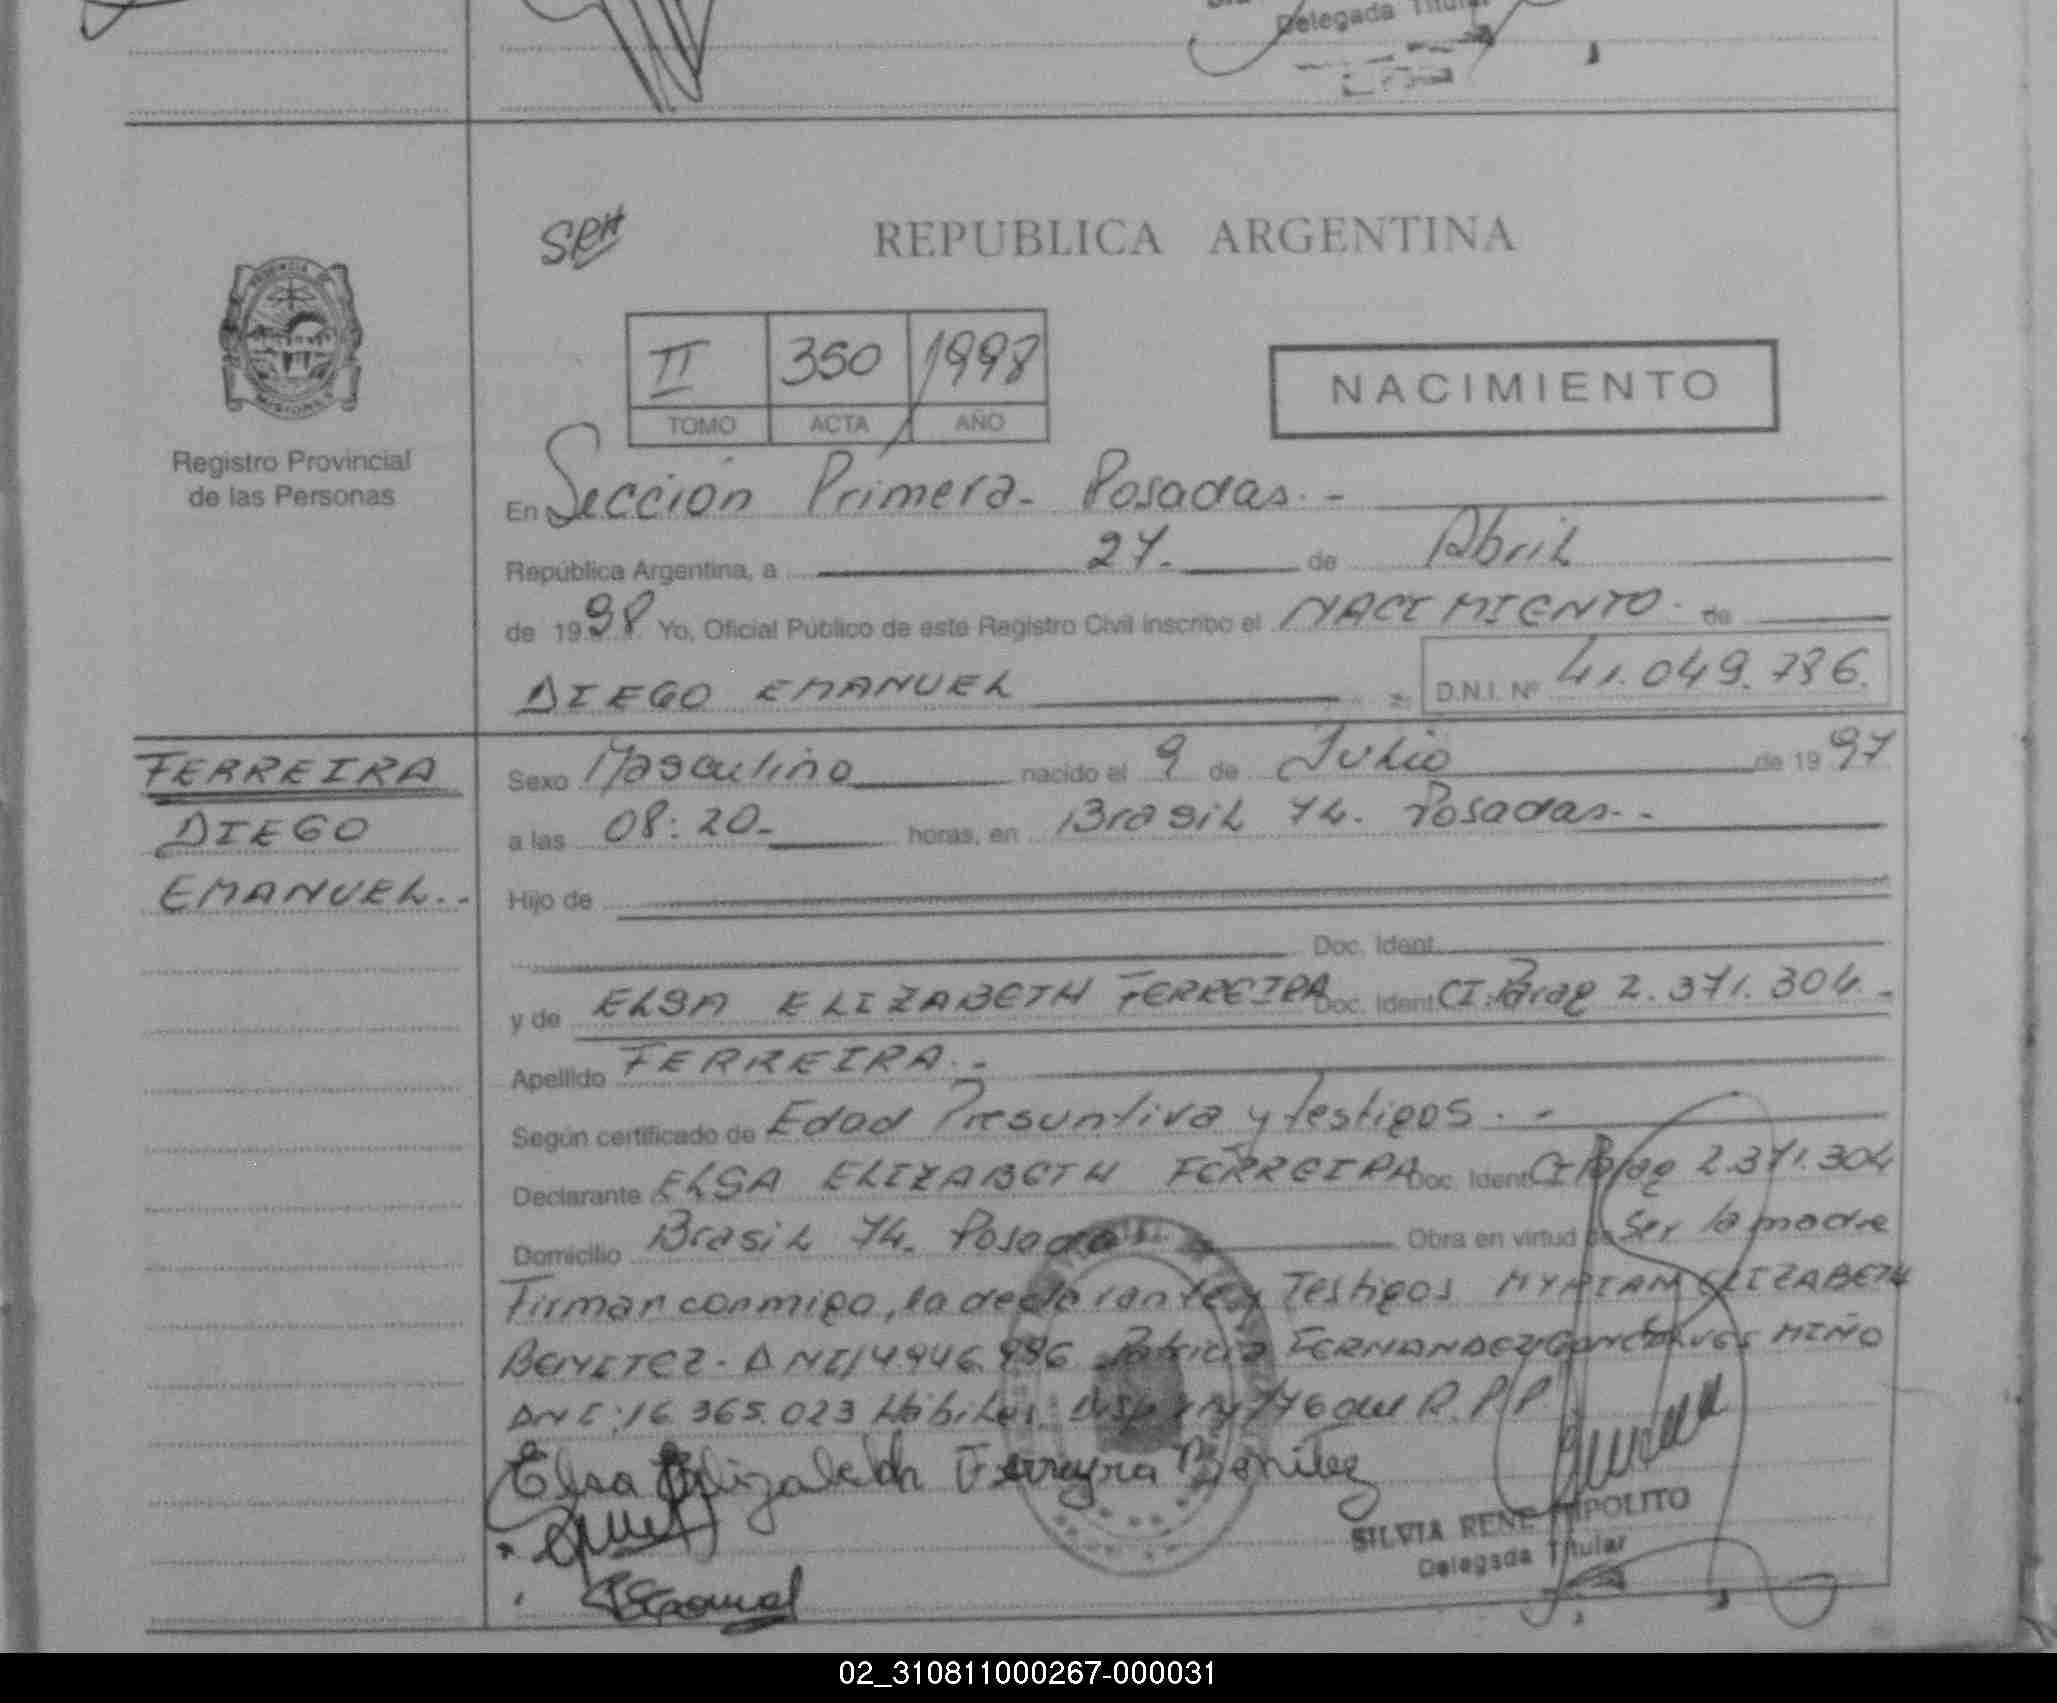 Delegada Titular
SRH
REPUBLICA ARGENTINA
II 350 1998
TOMO ACTA AÑO
NACIMIENTO
MISIONES
Registro Provincial
de las Personas
En Sección Primera - Posadas. -
República Argentina, a 27. de Abril
de 1998 Yo, Oficial Público de este Registro Civil inscribo el NACIMIENTO. de
DIEGO EMANUEL D.N.I. Nº 41.049.736.
FERREIRA
DIEGO
EMANUEL..
Sexo Masculino nacido el 9 de Julio de 1997
a las 08:20- horas, en Brasil 74. Posadas.-
Hijo de
Doc. Ident.
y de ELSA ELIZABETH FERREIRA Doc. Ident. CI. Parag 2.371.304. -
Apellido FERREIRA. -
Según certificado de Edad Presuntiva y testigos. -
Declarante ELSA ELIZABETH FERREIRA Doc. Ident. CI Parag 2.371.304
Domicilio Brasil 74. Posadas Obra en virtud de Ser la madre
Firman conmigo, la declarante y Testigos MYRIAM ELIZABETH
BENITEZ - DNI 14946.996 Patricia FERNANDEZ GONCALVES MIÑO
DNI: 16.365.023 Hábiles. 776 del R.P.P.
Elsa Elizabeth Ferreyra Benitez
SILVIA RENE HIPOLITO
Delegada Titular
02_310811000267-000031